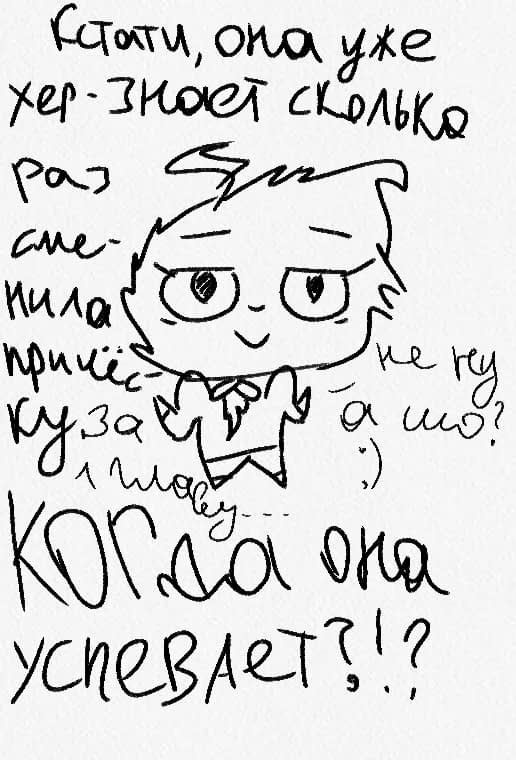 Кстати, она уже
хер-знает сколько
раз
сме-
нила
причёс-
ку за
1 главу...
не ну
а шо?
;)
КОГДА она
успевает?!?